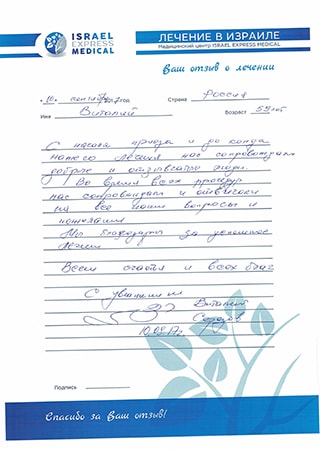 ISRAEL
EXPRESS
MEDICAL
ЛЕЧЕНИЕ В ИЗРАИЛЕ
Медицинский центр ISRAEL EXPRESS MEDICAL
Ваш отзыв о лечении
« 10 » сентября 2017 год Страна Россия
Имя Виталий Возраст 59 лет
С начала приезда и до конца
нашего лечения нас сопровождали
добрые и отзывчивые люди.
Во время всех процедур
нас сопровождали и отвечали
на все наши вопросы и
пожелания
Мы благодарны за успешное
лечение
Всем счастья и всех благ
С уважением
Виталий
10.09.17г.
Подпись
Спасибо за Ваш отзыв!